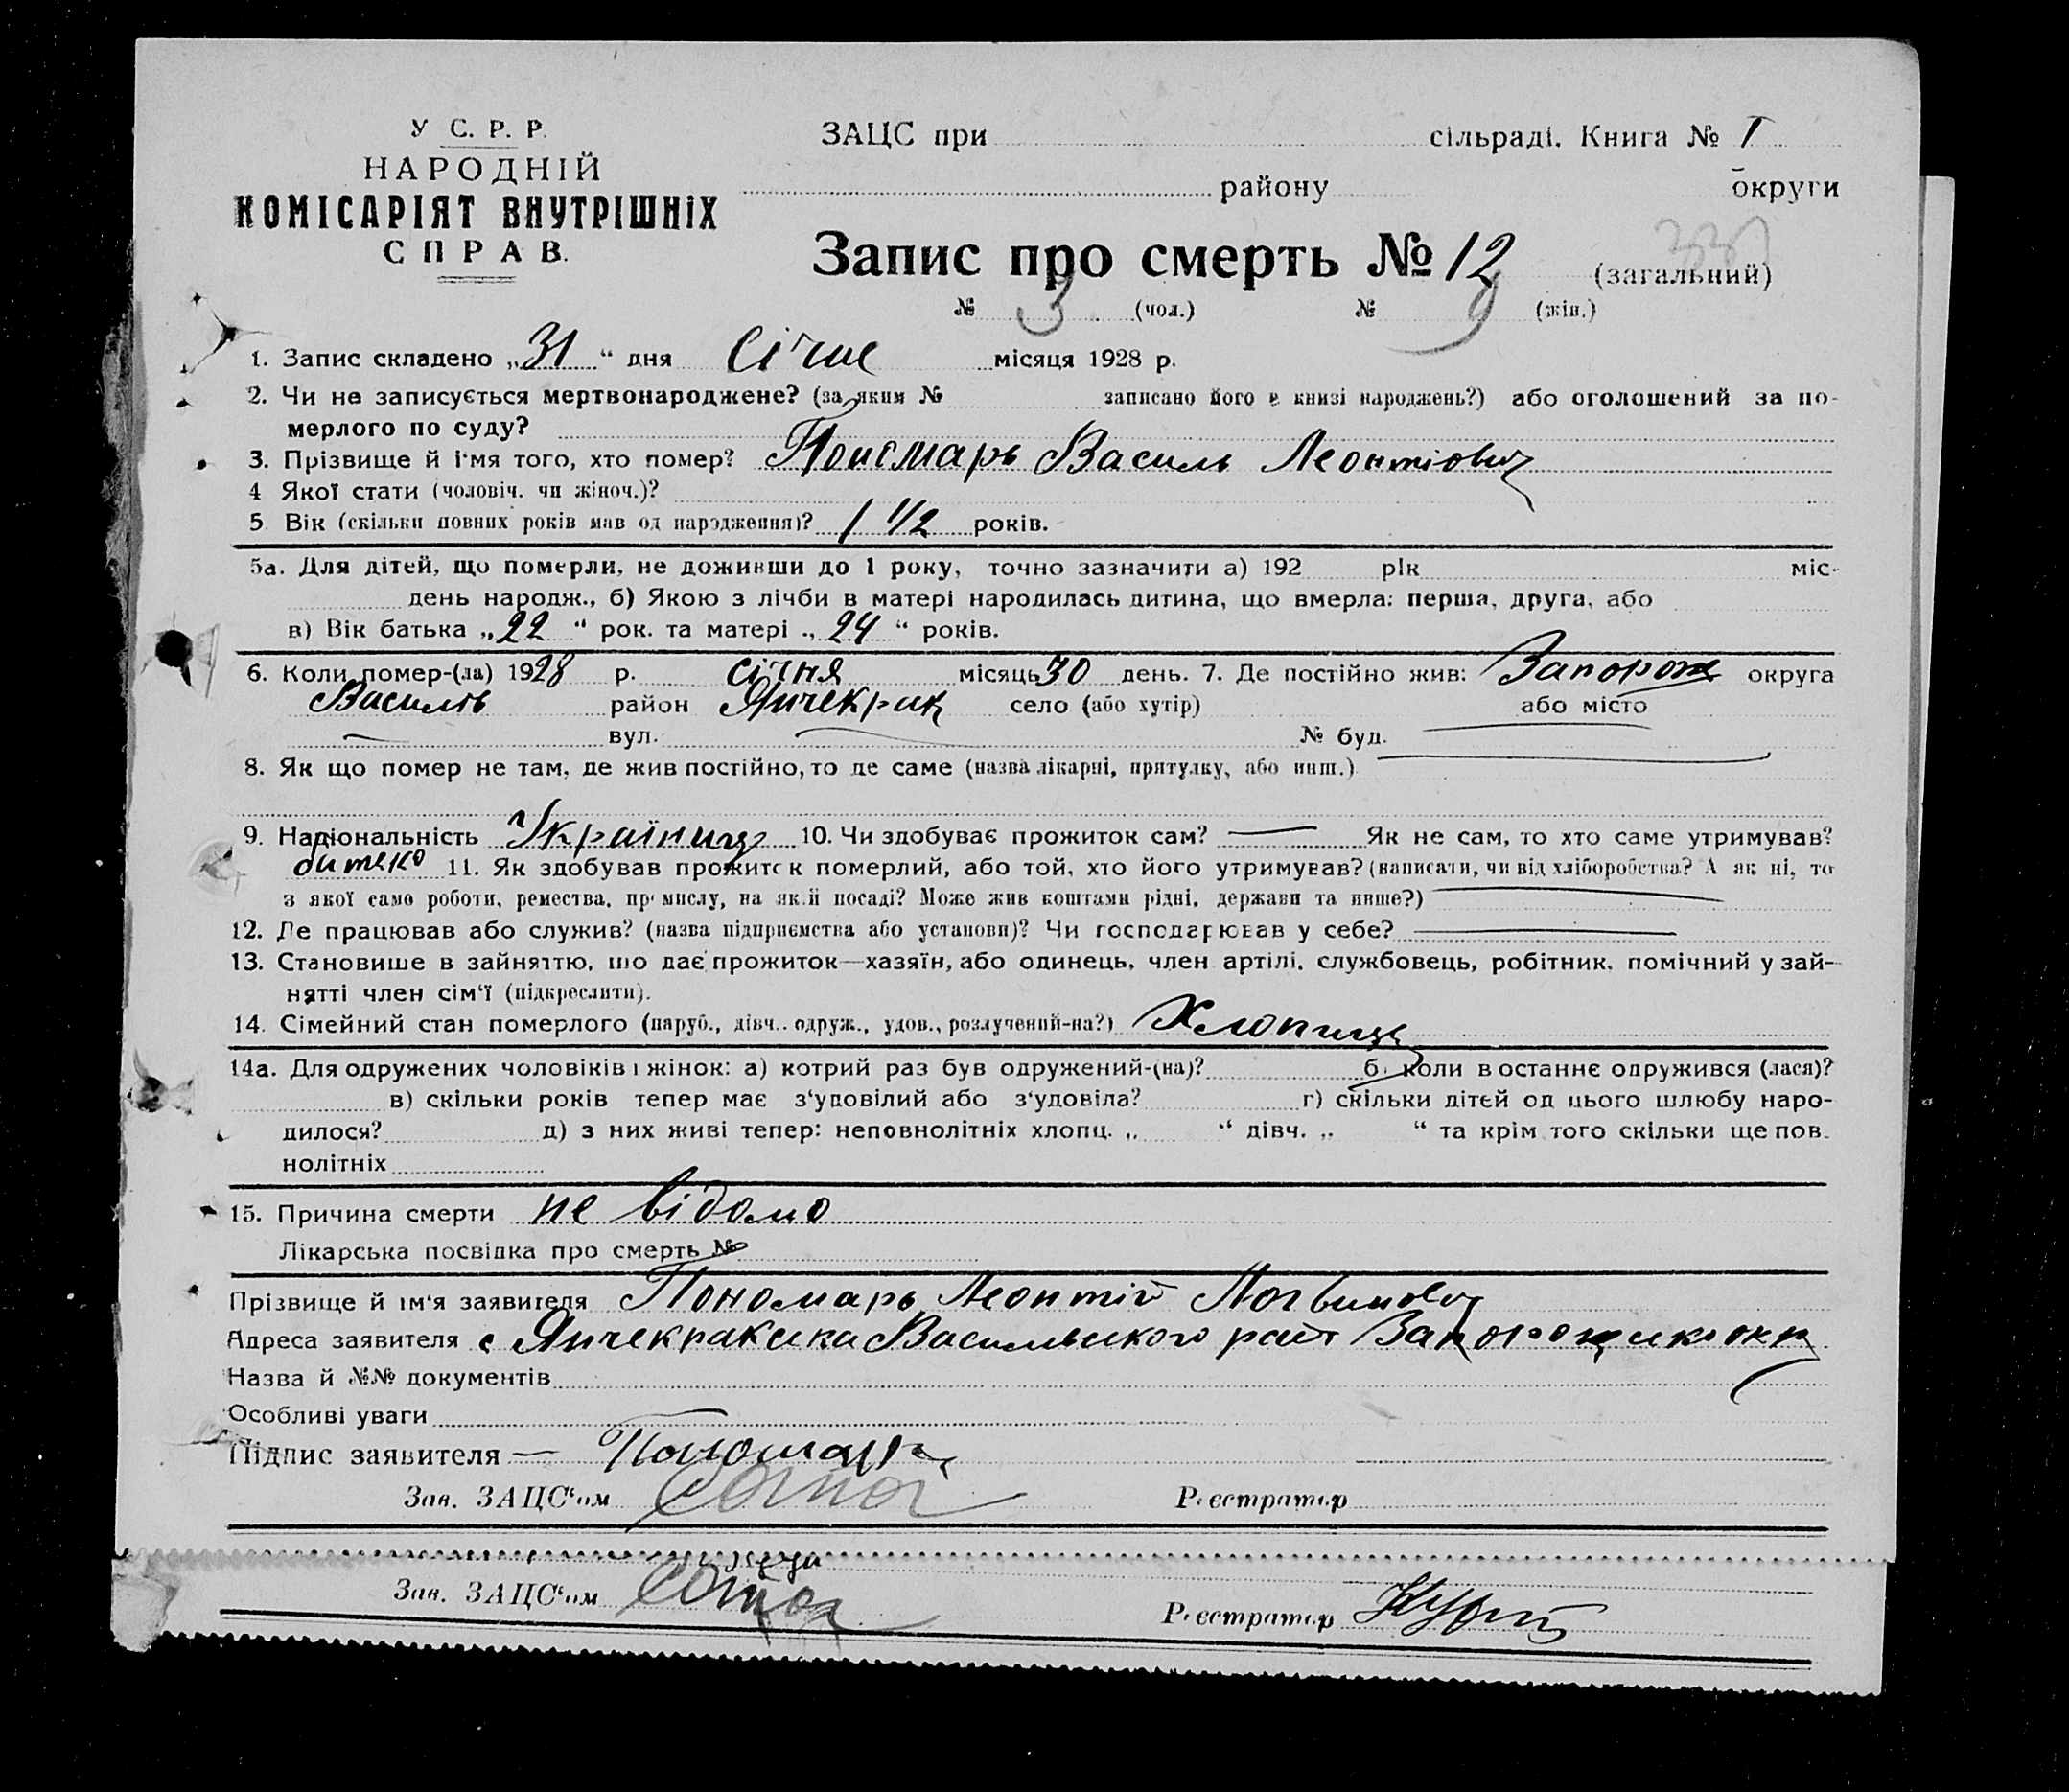 У С. Р. Р.
НАРОДНІЙ
КОМІСАРІЯТ ВНУТРІШНІХ
СПРАВ.
ЗАЦС при сільраді. Книга № I
району округи
Запис про смерть № 12 (загальний)
№ 3 (чол.) № 9 (жін.)
1. Запис складено „31“ дня Січне місяця 1928 р.
2. Чи не записується мертвонароджене? (за яким № записано його в книзі народжень?) або оголошений за по-
мерлого по суду?
3. Прізвище й ім'я того, хто помер? Пономарь Василь Леонтіович
4 Якої стати (чоловіч. чи жіноч.)?
5 Вік (скільки повних років мав од народження)? 1 1/2 років.
5а. Для дітей, що померли, не доживши до 1 року, точно зазначити а) 192 рік міс-
день народж., б) Якою з лічби в матері народилась дитина, що вмерла: перша, друга, або
в) Вік батька „22“ рок. та матері „24“ років.
6. Коли помер-(ла) 1928 р. січня місяць 30 день. 7. Де постійно жив: Запорож округа
Василів район Янчекрак село (або хутір) або місто
вул. № буд.
8. Як що помер не там, де жив постійно, то де саме (назва лікарні, притулку, або инш.)
9. Національність Українець 10. Чи здобуває прожиток сам? — Як не сам, то хто саме утримував?
батько 11. Як здобував прожиток померлий, або той, хто його утримував? (написати, чи від хліборобства? А як ні, то
з якої само роботи, ремества, промислу, на якій посаді? Може жив коштами рідні, держави та инше?)
12. Де працював або служив? (назва підприємства або установи)? Чи господарював у себе?
13. Становище в зайняттю, що дає прожиток—хазяїн, або одинець, член артілі, службовець, робітник, помічний у зай-
нятті член сім'ї (підкреслити).
14. Сімейний стан померлого (паруб., дівч., одруж., удов., розлучений-на?) Хлопчик
14а. Для одружених чоловіків і жінок: а) котрий раз був одружений-(на)? б) коли востаннє одружився (лася)?
в) скільки років тепер має з'уповілий або з'удовіла? г) скільки дітей од цього шлюбу наро-
дилося? д) з них живі тепер: неповнолітніх хлопц. „ “ дівч. „ “ та крім того скільки ще пов.
нолітніх
15. Причина смерти не відомо
Лікарська посвідка про смерть №
Прізвище й ім'я заявителя Пономарь Леонтій Логвинович
Адреса заявителя с Янчекракська Васильвского райт Запорощико окр
Назва й №№ документів
Особливі уваги
Підпис заявителя — Пономарь
Зав. ЗАЦС'ом Реєстратор
Зав. ЗАЦС'ом Реєстратор